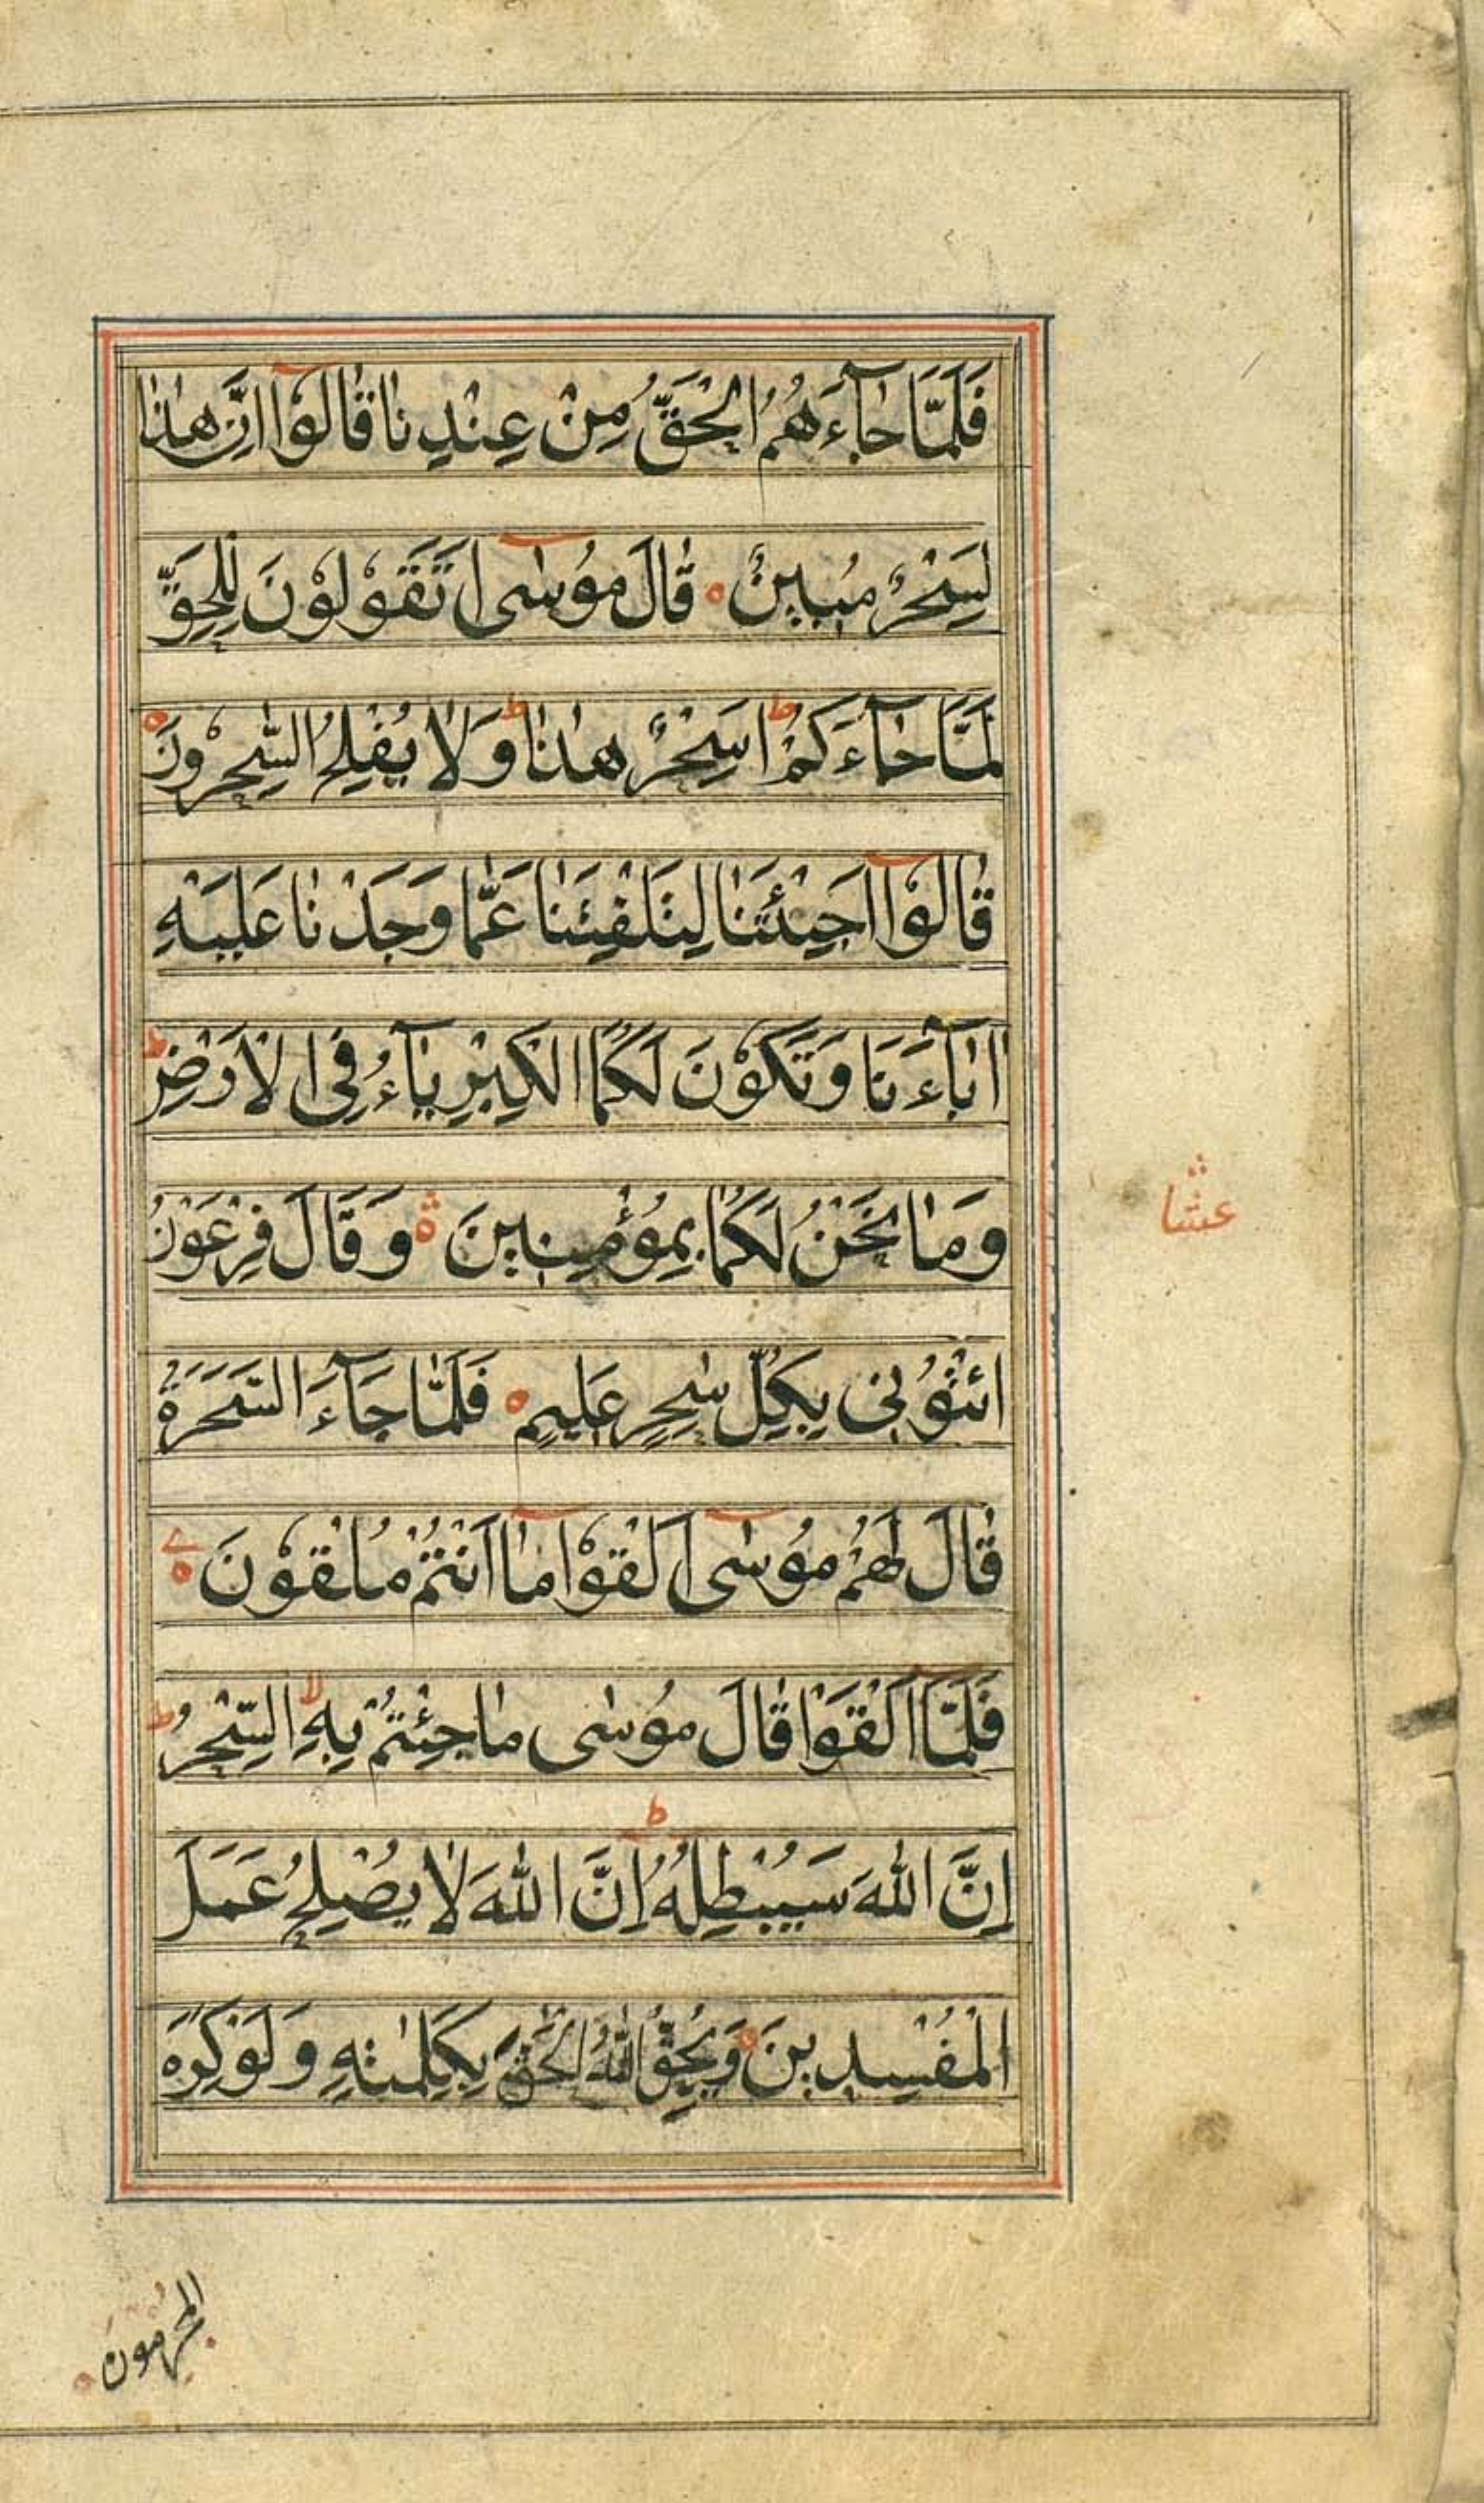 فَلَمَّا جَآءَهُمُ الْحَقُّ مِنْ عِنْدِنَا قَالُوْٓا اِنَّ هٰذَا
لَسِحْرٌ مُّبِيْنٌ ه قَالَ مُوْسٰٓى اَتَقُوْلُوْنَ لِلْحَقِّ
لَمَّا جَآءَكُمْ ط اَسِحْرٌ هٰذَا ط وَلَا يُفْلِحُ السّٰحِرُوْنَ ه
قَالُوْٓا اَجِئْتَنَا لِتَلْفِتَنَا عَمَّا وَجَدْنَا عَلَيْهِ
اٰبَآءَنَا وَتَكُوْنَ لَكُمَا الْكِبْرِيَآءُ فِى الْاَرْضِ ط
وَمَا نَحْنُ لَكُمَا بِمُؤْمِنِيْنَ ه وَقَالَ فِرْعَوْنُ
ائْتُوْنِىْ بِكُلِّ سٰحِرٍ عَلِيْمٍ ه فَلَمَّا جَآءَ السَّحَرَةُ
قَالَ لَهُمْ مُوْسٰٓى اَلْقُوْا مَآ اَنْتُمْ مُلْقُوْنَ ه
فَلَمَّآ اَلْقَوْا قَالَ مُوْسٰى مَا جِئْتُمْ بِهِ لا السِّحْرُ ط
اِنَّ اللّٰهَ سَيُبْطِلُهُ ط اِنَّ اللّٰهَ لَا يُصْلِحُ عَمَلَ
الْمُفْسِدِيْنَ ه وَيُحِقُّ اللّٰهُ الْحَقَّ بِكَلِمٰتِهِ وَلَوْ كَرِهَ
الْمُجْرِمُوْنَ ه